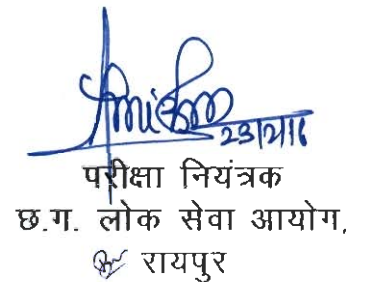 23/2/16
परीक्षा नियंत्रक
छ.ग. लोक सेवा आयोग,
रायपुर